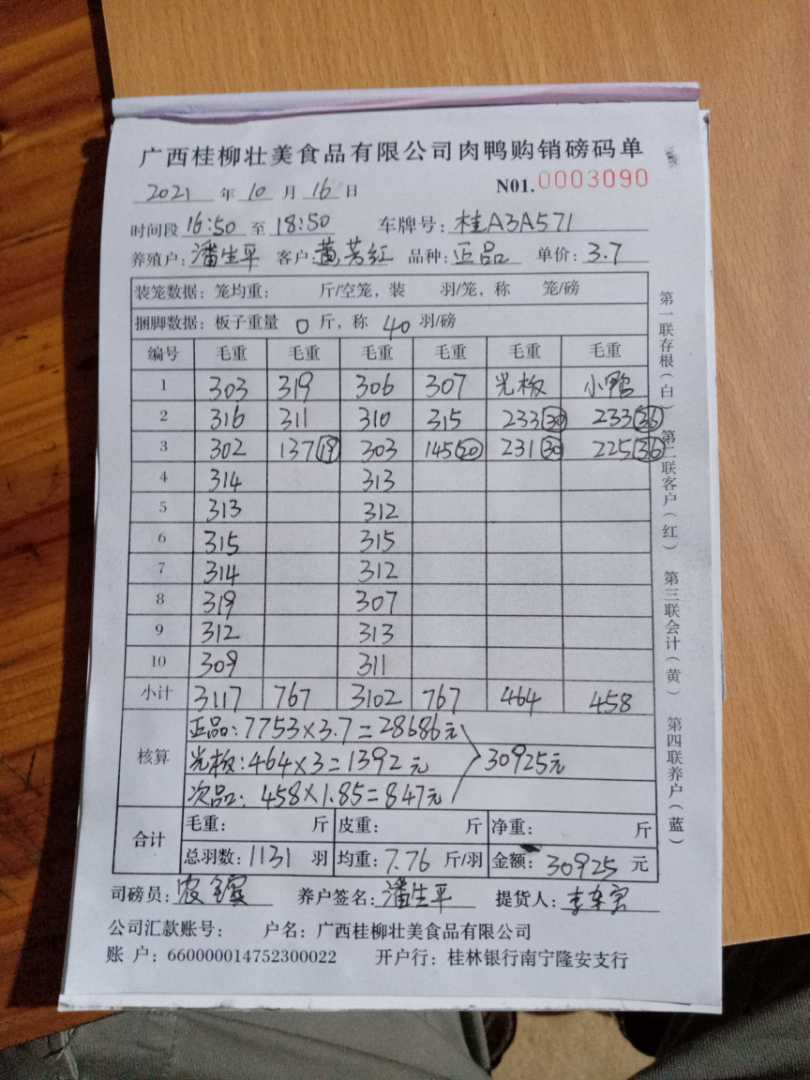 广西桂柳壮美食品有限公司肉鸭购销磅码单
2021 年 10 月 16 日 N01.0003090
时间段 16:50 至 18:50 车牌号: 桂A3A571
养殖户: 潘生平 客户: 黄芳红 品种: 正品 单价: 3.7
装笼数据: 笼均重: 斤/空笼, 装 羽/笼, 称 笼/磅
捆脚数据: 板子重量 0 斤, 称 40 羽/磅
编号 毛重 毛重 毛重 毛重 毛重 毛重
1 303 319 306 307 光板 小鸭
2 316 311 310 315 233(30) 233(36)
3 302 137(19) 303 145(20) 231(30) 225(36)
4 314 313
5 313 312
6 315 315
7 314 312
8 319 307
9 312 313
10 309 311
小计 3117 767 3102 767 464 458
核算
正品: 7753×3.7=28686元
光板: 464×3=1392元
次品: 458×1.85=847元
30925元
合计
毛重: 斤 皮重: 斤 净重: 斤
总羽数: 1131 羽 均重: 7.76 斤/羽 金额: 30925 元
司磅员: 养户签名: 潘生平 提货人:
公司汇款账号: 户名: 广西桂柳壮美食品有限公司
账 户: 660000014752300022 开户行: 桂林银行南宁隆安支行
第一联存根(白) 第二联客户(红) 第三联会计(黄) 第四联养户(蓝)